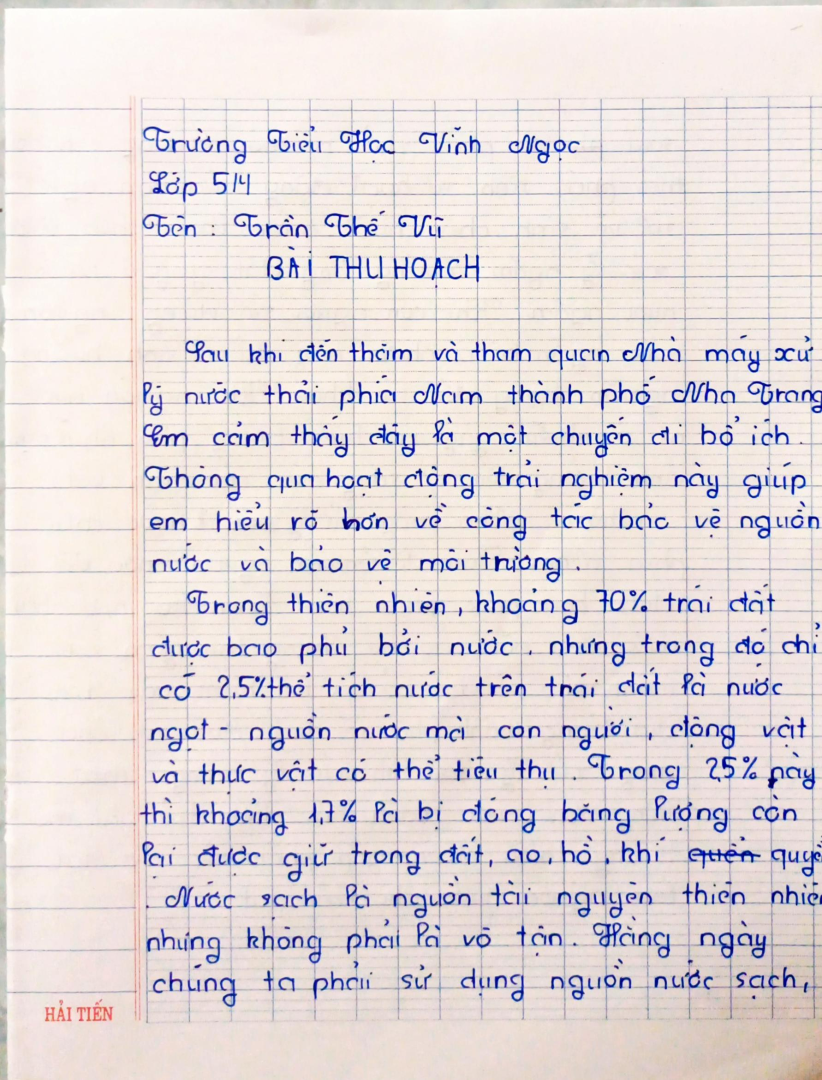 Trường Tiểu Học Vĩnh Ngọc
Lớp 5/4
Tên : Trần Thế Vũ
BÀI THU HOẠCH
Sau khi đến thăm và tham quan Nhà máy xử
lý nước thải phía Nam thành phố Nha Trang
Em cảm thấy đây là một chuyến đi bổ ích.
Thông qua hoạt động trải nghiệm này giúp
em hiểu rõ hơn về công tác bảo vệ nguồn
nước và bảo vệ môi trường.
Trong thiên nhiên, khoảng 70% trái đất
được bao phủ bởi nước, nhưng trong đó chỉ
có 2,5% thể tích nước trên trái đất là nước
ngọt - nguồn nước mà con người, động vật
và thực vật có thể tiêu thụ. Trong 2,5% này
thì khoảng 1,7% là bị đóng băng lượng còn
lại được giữ trong đất, ao, hồ, khí quyể
. Nước sạch là nguồn tài nguyên thiên nhiên
nhưng không phải là vô tận. Hằng ngày
chúng ta phải sử dụng nguồn nước sạch,
HẢI TIẾN